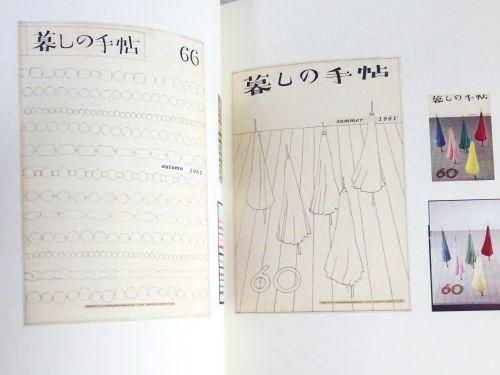 暮しの手帖
66
autumn 1962
暮しの手帖
summer 1961
60
暮しの手帖
60
60